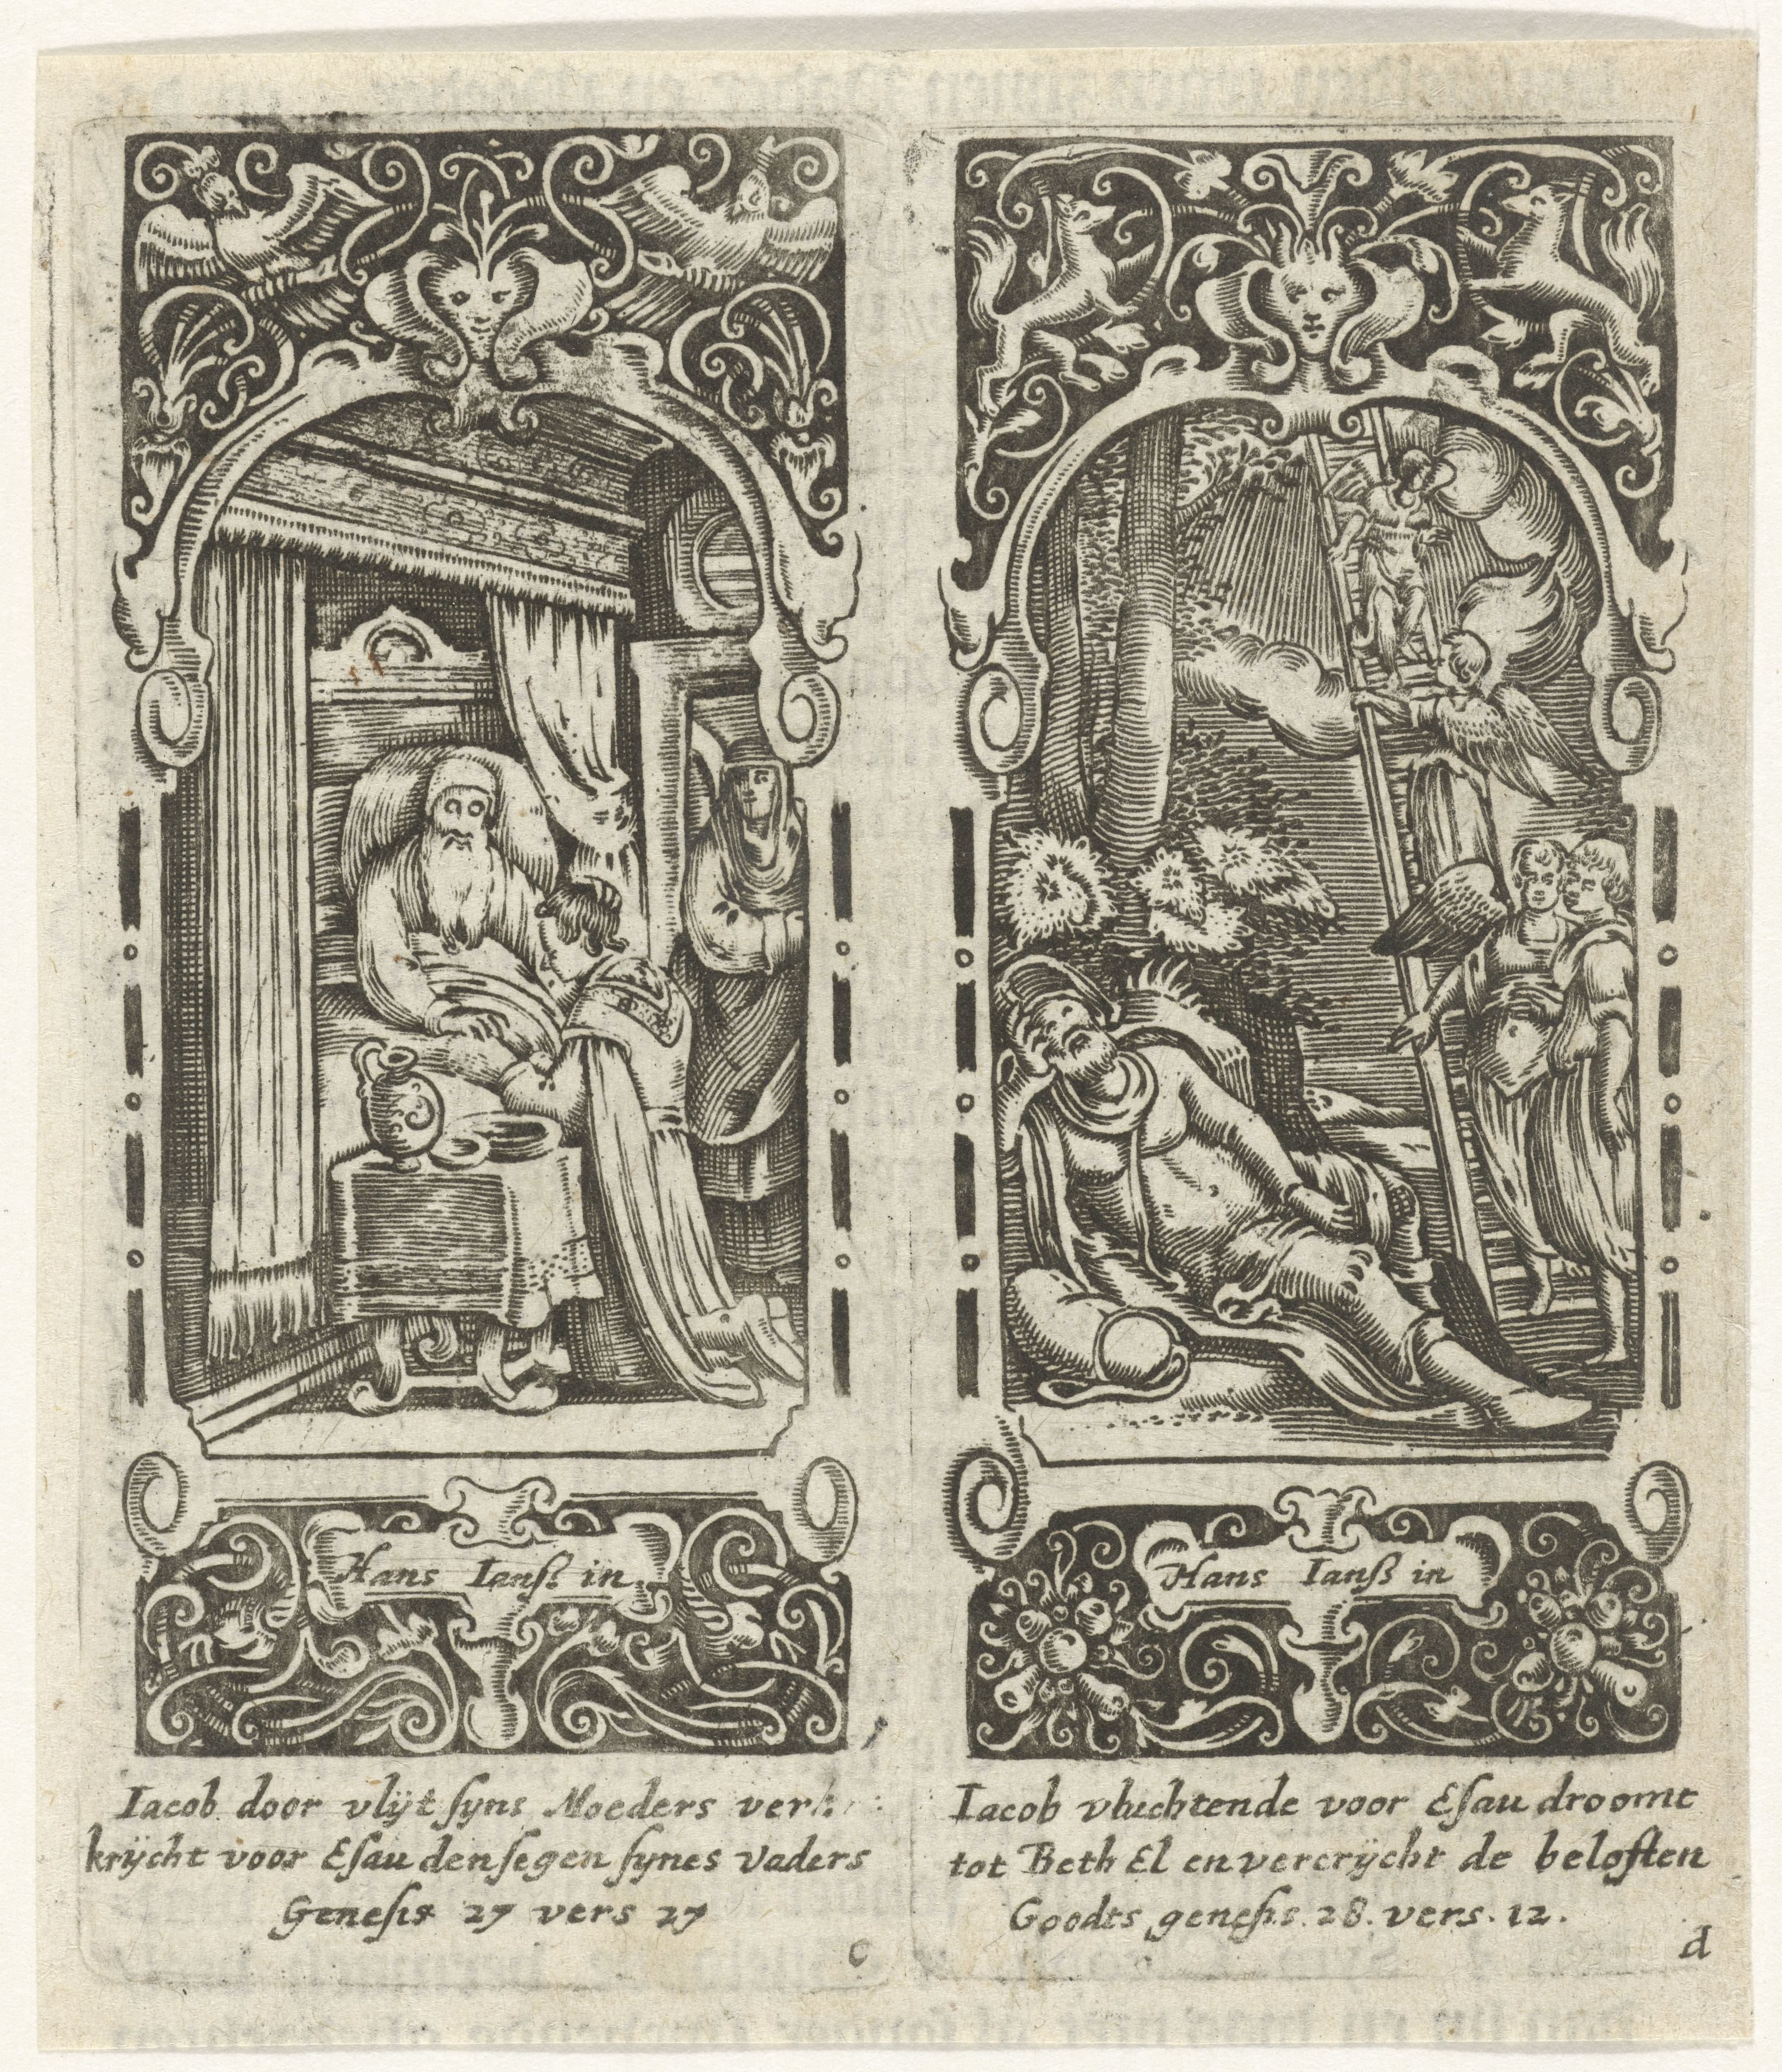 Hans Ianß in
Iacob door vlijt ſyns Moeders ver
krijcht voor Eſau den ſegen ſynes Vaders
Geneſis 27 vers 27
c
Hans Ianß in
Iacob vluchtende voor Eſau droomt
tot Beth El en vercrijcht de beloften
Goodts geneſis. 28. vers. 12.
d